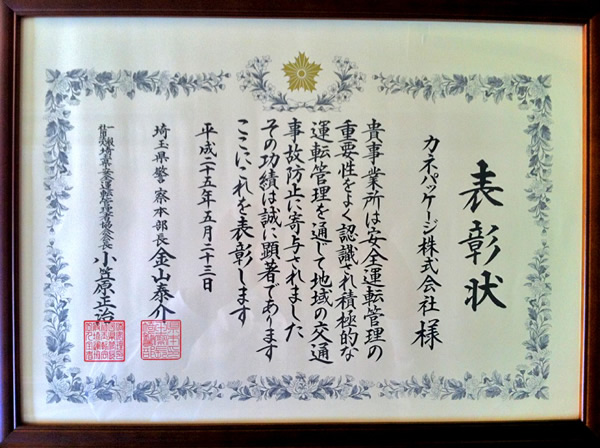 表彰状
カネパッケージ株式会社様
貴事業所は安全運転管理の
重要性をよく認識され積極的な
運転管理を通じて地域の交通
事故防止に寄与されました
その功績は誠に顕著であります
ここにこれを表彰します
平成二十五年五月二十三日
埼玉県警察本部長 金山泰介
一般社団法人埼玉県安全運転管理者協会会長 小笠原正治